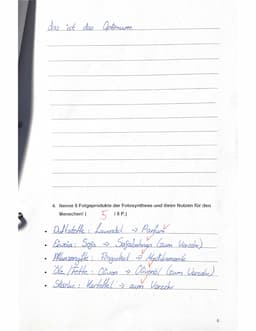 das ist das Optimum.
4. Nenne 5 Folgeprodukte der Fotosynthese und ihren Nutzen für den
Menschen! ( 5 / 5 P.)
• Duftstoffe: Lavendel → Parfum
• Soja → (zum Verzehr)
• Pflanzengifte: → Medikamente
• Öle/Fette: Oliven → Olivenöl (zum Verzehr)
• Stärke: Kartoffel → zum Verzehr
6